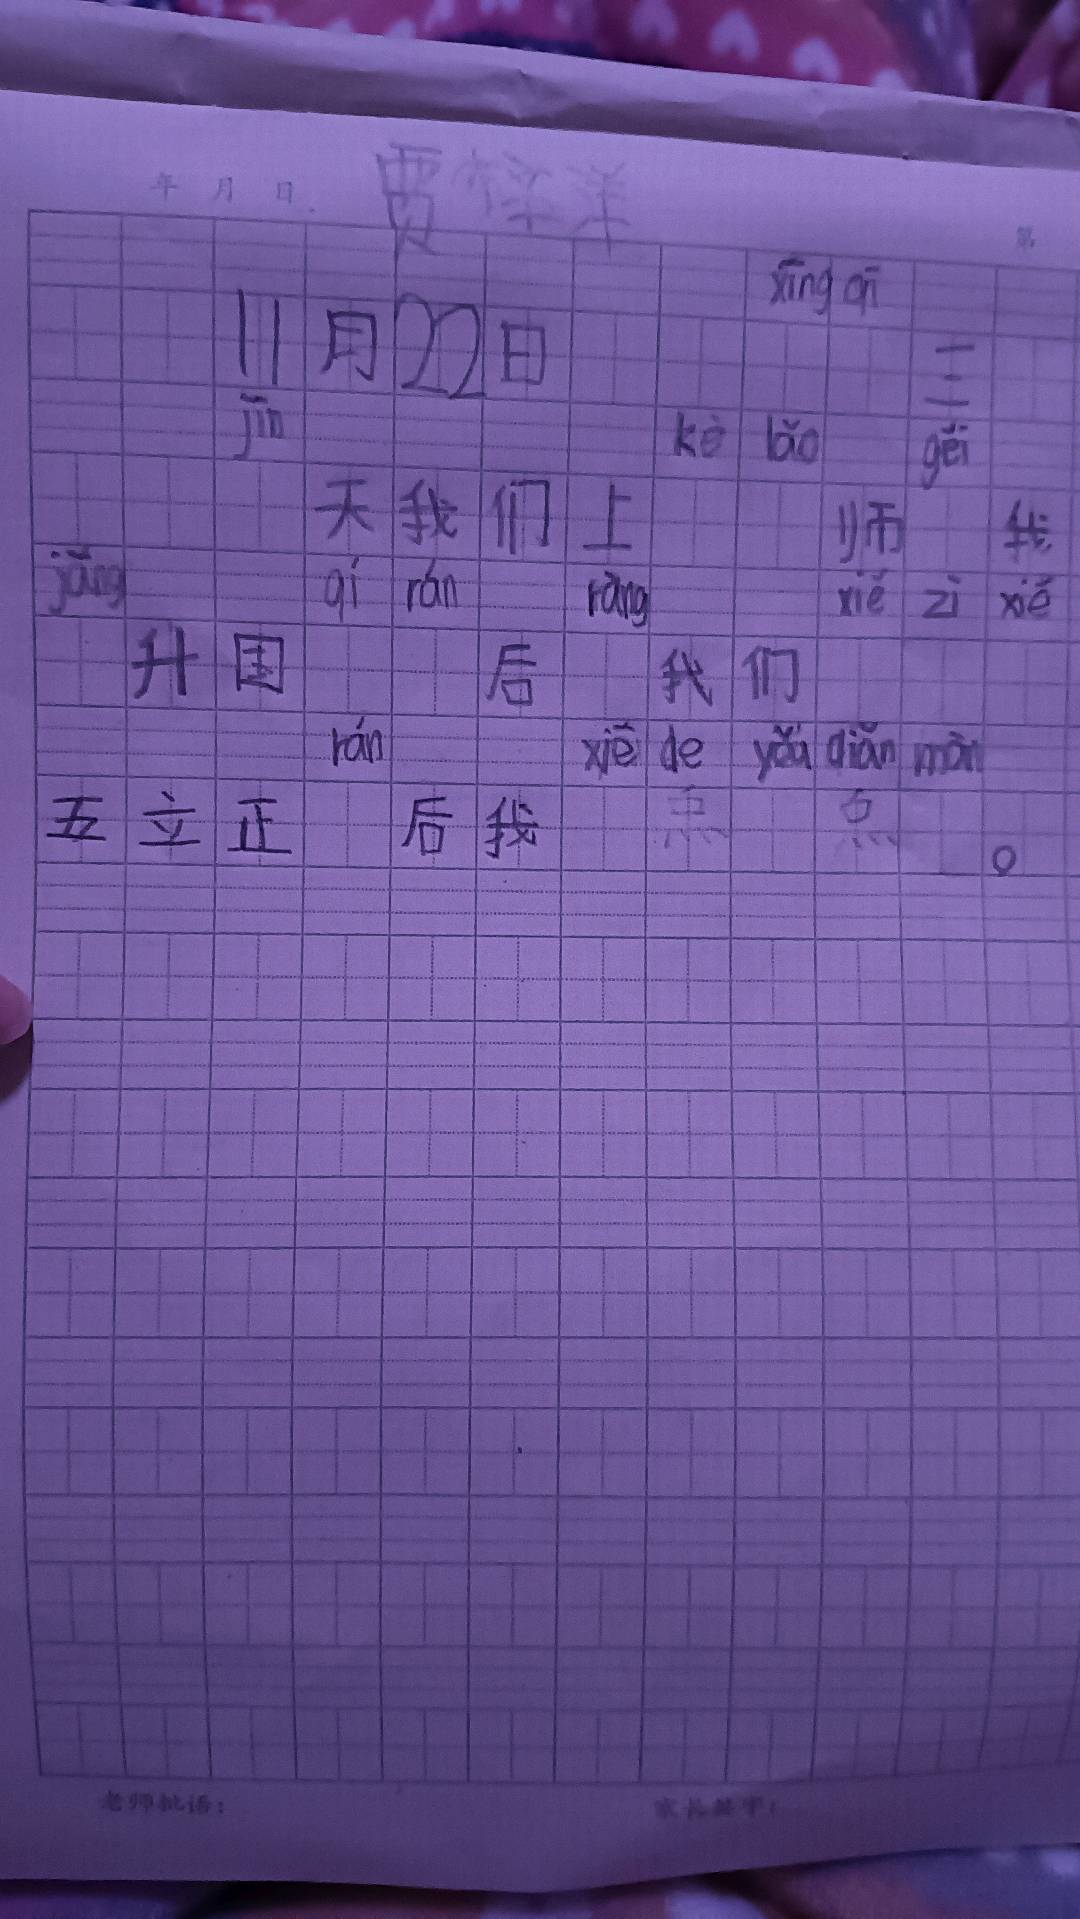 年 月 日 贾梓洋
第
xīng qī
11月22日 三
jīn kè lǎo gěi
天我们上 师 我
jǎng qí rán ràng xiě zì xiě
升国 后 我们
rán xiě de yǒu diǎn màn
五立正 后我 点 点 。
老师批语：
家长签字：